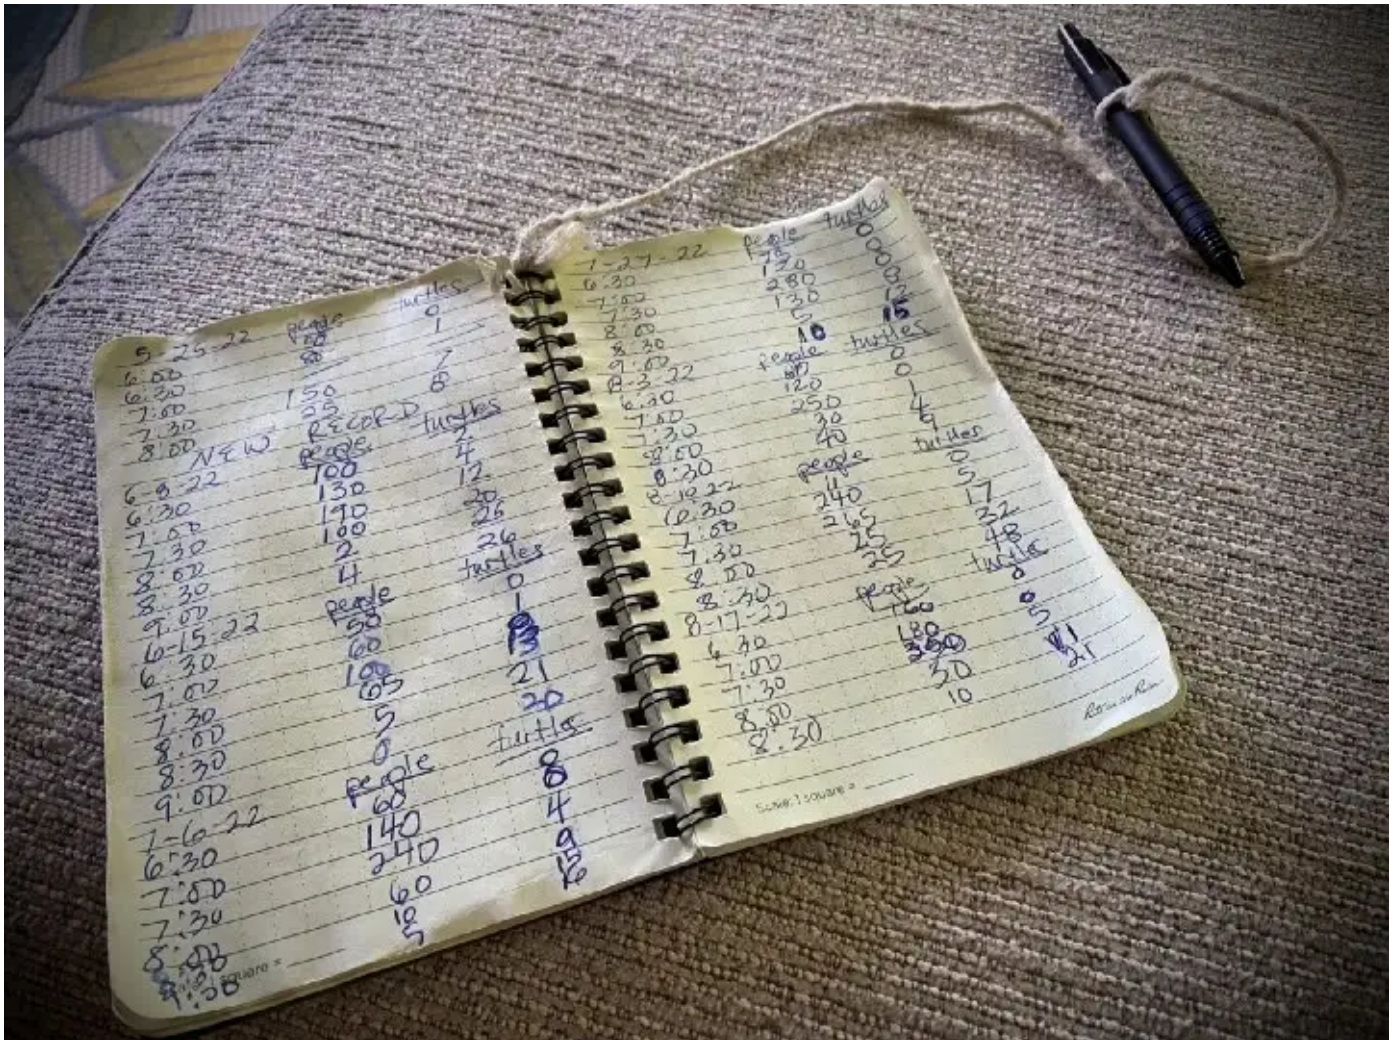 5-25-22 people turtles
6:00 0
6:30 80 1
7:00
7:30 150 7
8:00 25 8
NEW RECORD
6-8-22 people turtles
6:30 100 2
7:00 130 4
7:30 190 12
8:00 100 20
8:30 2 26
9:00 4 26
6-15-22 people turtles
6:30 50 0
7:00 60 1
7:30 100
8:00 65 13
8:30 5 21
9:00 0 20
7-6-22 people turtles
6:30 60 8
7:00 140 0
7:30 240 4
8:00 60 9
10 15
9:00 5 16
square =
7-27-22 people turtles
6:30 0
7:00 120 0
7:30 280 0
8:00 130 0
8:30 5 12
9:00 10 15
8-3-22 people turtles
6:30 0
7:00 120 0
7:30 250 1
8:00 30 4
8:30 40 9
8-10-22 people turtles
6:30 0
7:00 240 5
7:30 265 17
8:00 25 32
8:30 25 48
8-17-22 people turtles
6:30 160 0
7:00 180 0
7:30 350 5
8:00 30
8:30 10 21
Scale: 1 square =